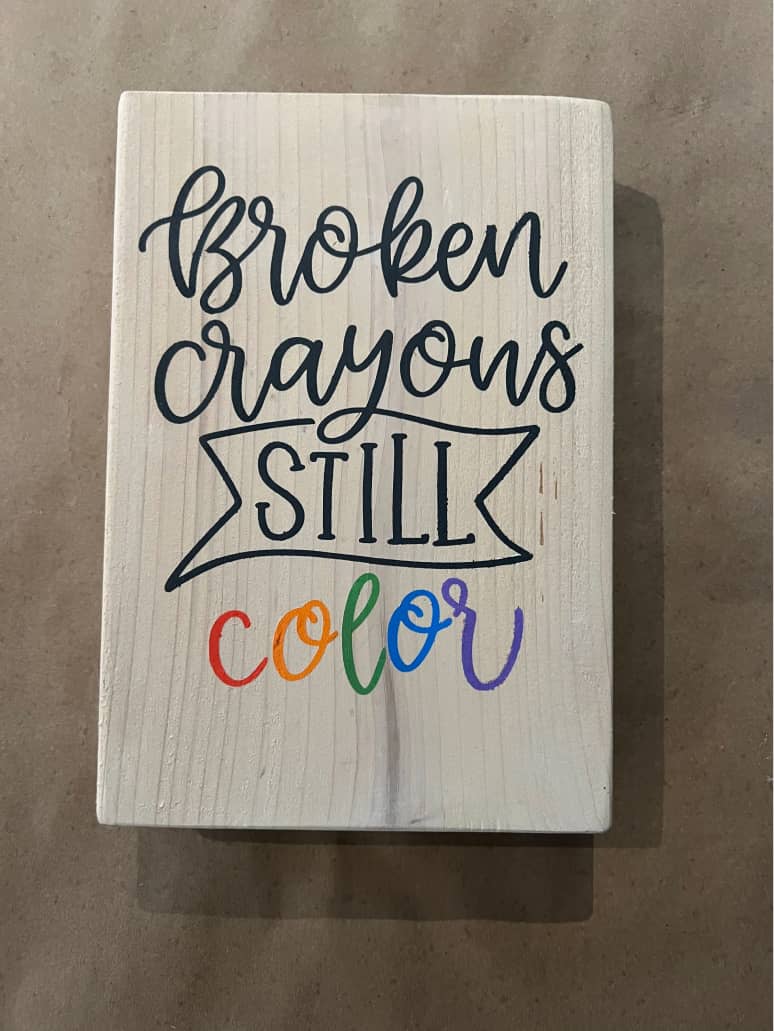 Broken
crayons
STILL
color